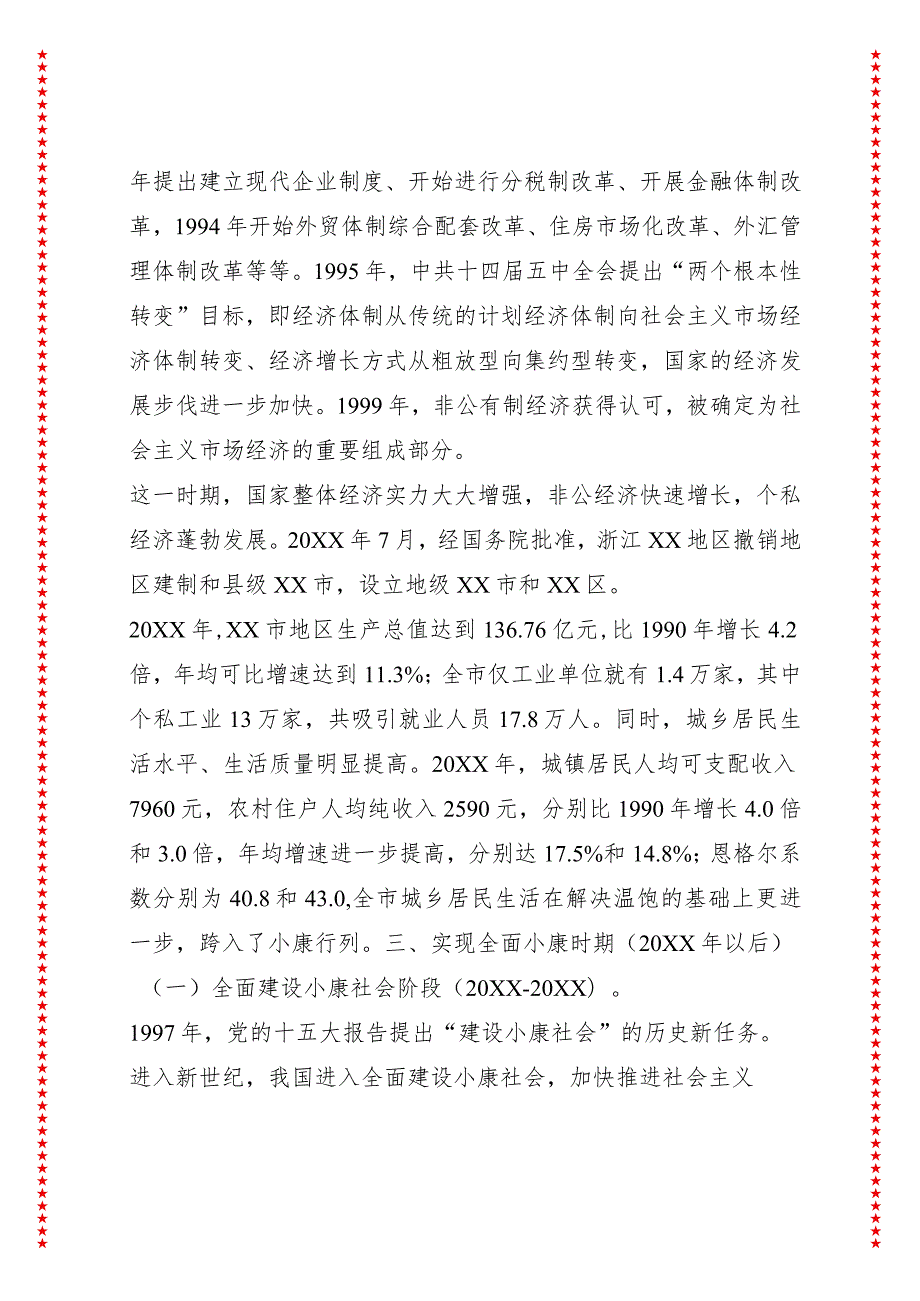 年提出建立现代企业制度、开始进行分税制改革、开展金融体制改
革，1994年开始外贸体制综合配套改革、住房市场化改革、外汇管
理体制改革等等。1995年，中共十四届五中全会提出“两个根本性
转变”目标，即经济体制从传统的计划经济体制向社会主义市场经
济体制转变、经济增长方式从粗放型向集约型转变，国家的经济发
展步伐进一步加快。1999年，非公有制经济获得认可，被确定为社
会主义市场经济的重要组成部分。
这一时期，国家整体经济实力大大增强，非公经济快速增长，个私
经济蓬勃发展。20XX年7月，经国务院批准，浙江XX地区撤销地
区建制和县级XX市，设立地级XX市和XX区。
20XX年,XX市地区生产总值达到136.76亿元,比1990年增长4.2
倍，年均可比增速达到11.3%；全市仅工业单位就有1.4万家，其中
个私工业13万家，共吸引就业人员17.8万人。同时，城乡居民生
活水平、生活质量明显提高。20XX年，城镇居民人均可支配收入
7960元，农村住户人均纯收入2590元，分别比1990年增长4.0倍
和3.0倍，年均增速进一步提高，分别达17.5%和14.8%；恩格尔系
数分别为40.8和43.0,全市城乡居民生活在解决温饱的基础上更进
一步，跨入了小康行列。三、实现全面小康时期（20XX年以后）
（一）全面建设小康社会阶段（20XX-20XX）。
1997年，党的十五大报告提出“建设小康社会”的历史新任务。
进入新世纪，我国进入全面建设小康社会，加快推进社会主义